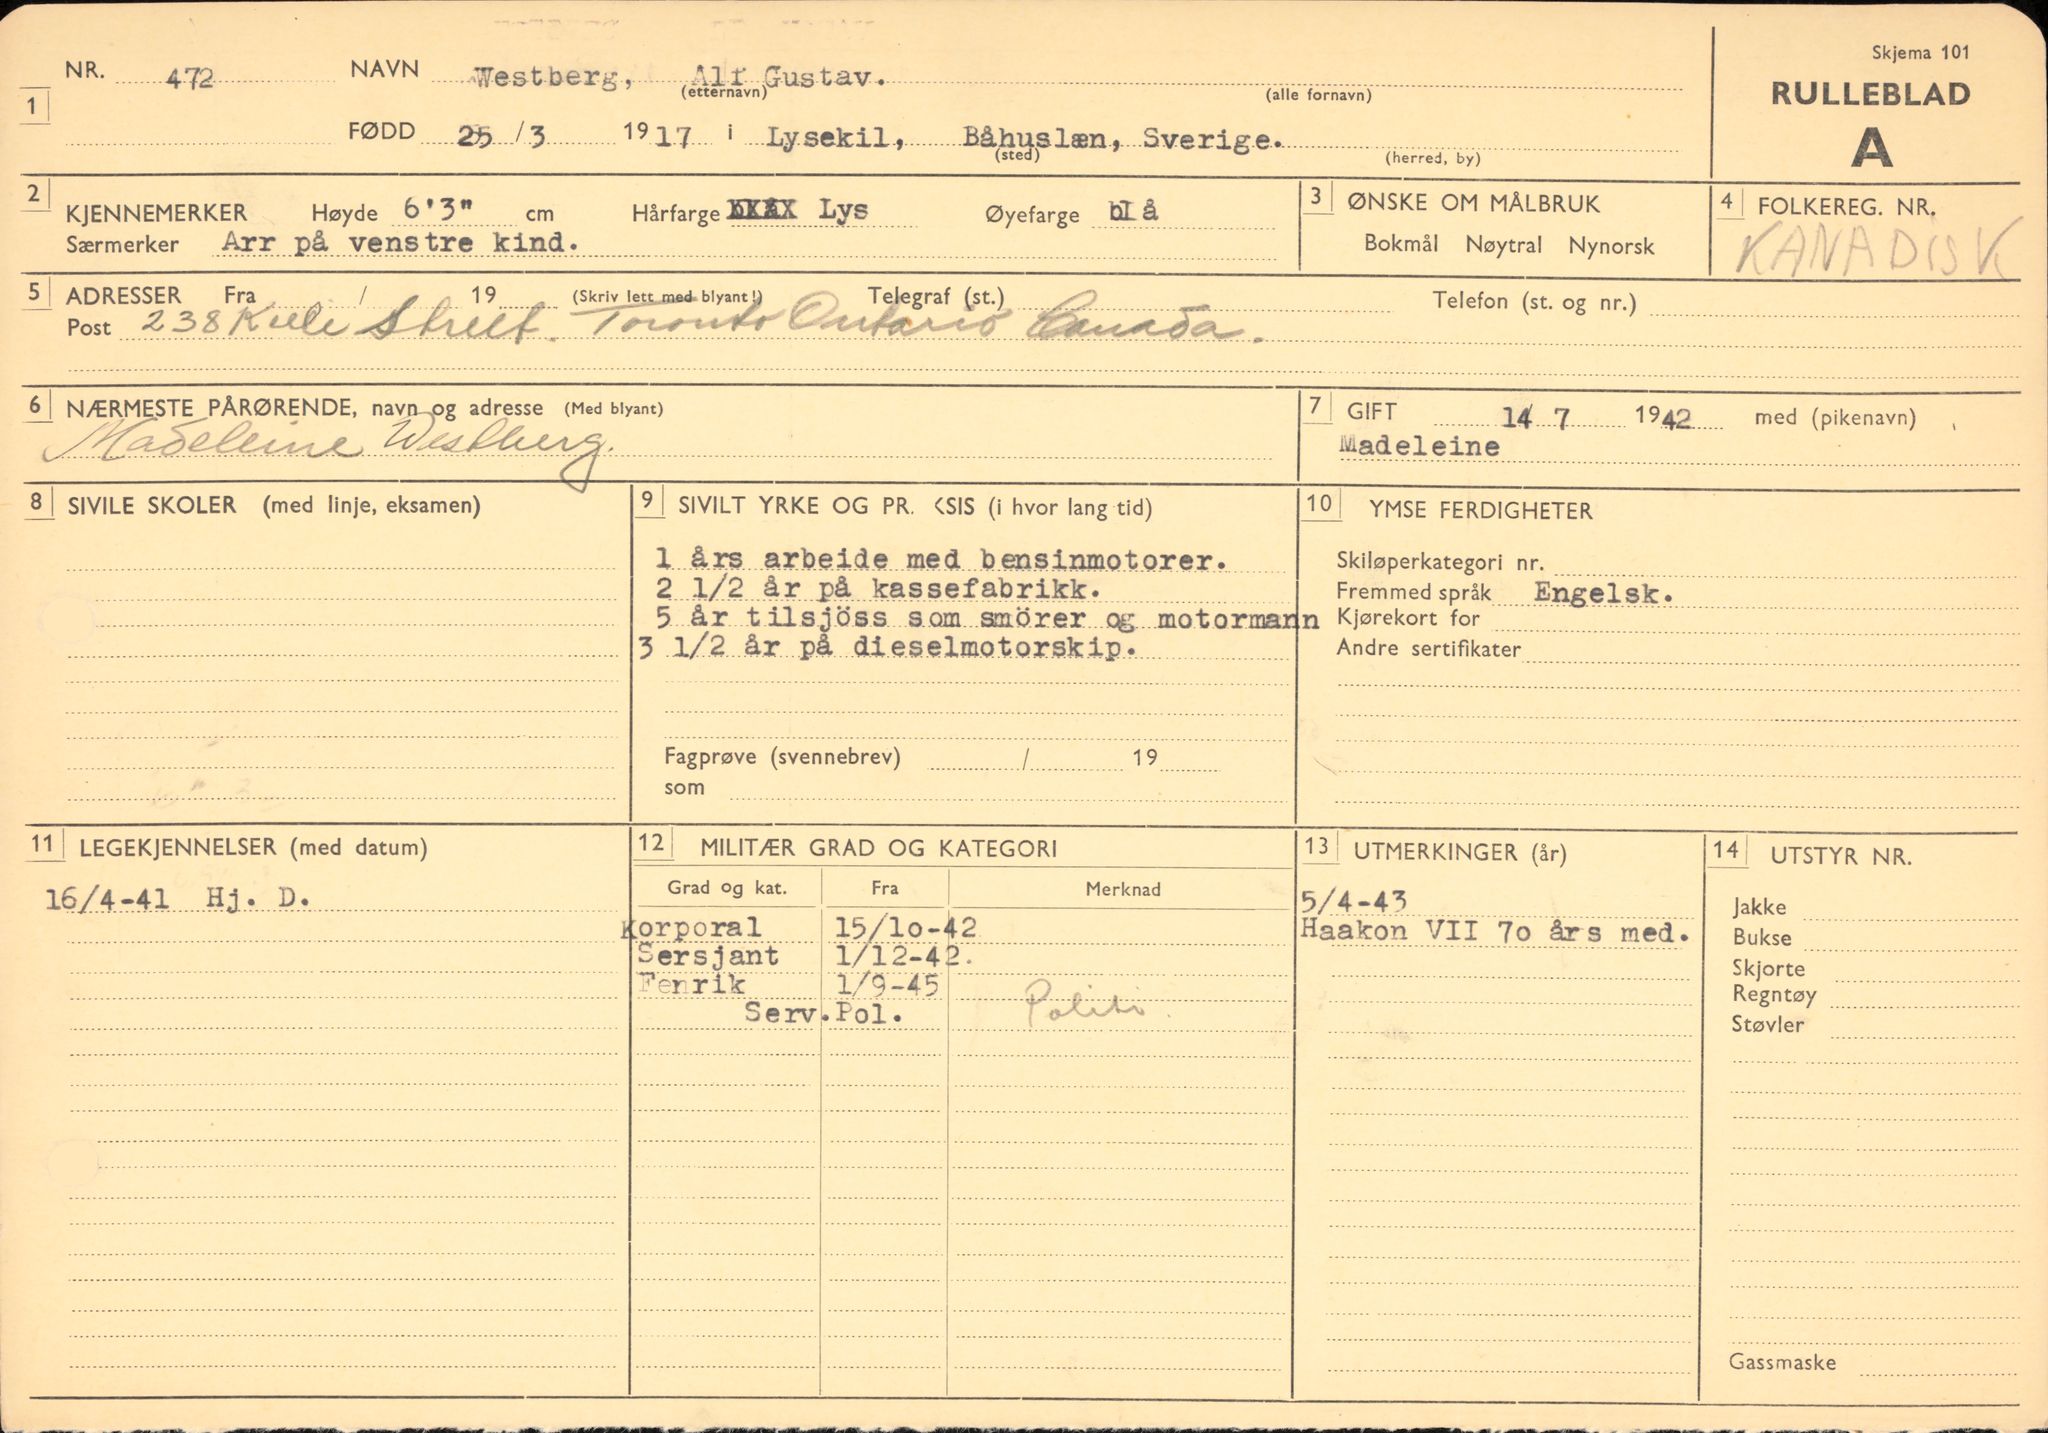 Skjema 101
RULLEBLAD
A
1
NR. 472 NAVN Westberg, Alf Gustav.
(etternavn) (alle fornavn)
FØDD 25/3 1917 i Lysekil, Båhuslæn, Sverige.
(sted) (herred, by)
2 KJENNEMERKER Høyde 6'3" cm Hårfarge Lys Øyefarge blå
Særmerker Arr på venstre kind.
3 ØNSKE OM MÅLBRUK
Bokmål Nøytral Nynorsk
4 FOLKEREG. NR.
KANADISK
5 ADRESSER Fra / 19 (Skriv lett med blyant!) Telegraf (st.) Telefon (st. og nr.)
Post 238 Keele Street. Toronto Ontario Canada.
6 NÆRMESTE PÅRØRENDE, navn og adresse (Med blyant)
Madeleine Westberg.
7 GIFT 14/7 1942 med (pikenavn)
Madeleine
8 SIVILE SKOLER (med linje, eksamen)
9 SIVILT YRKE OG PR. KSIS (i hvor lang tid)
1 års arbeide med bensinmotorer.
2 1/2 år på kassefabrikk.
5 år tilsjöss som smörer og motormann
3 1/2 år på dieselmotorskip.
Fagprøve (svennebrev) / 19
som
10 YMSE FERDIGHETER
Skiløperkategori nr.
Fremmed språk Engelsk.
Kjørekort for
Andre sertifikater
11 LEGEKJENNELSER (med datum)
16/4-41 Hj. D.
12 MILITÆR GRAD OG KATEGORI
Grad og kat. Fra Merknad
Korporal 15/10-42
Sersjant 1/12-42.
Fenrik 1/9-45
Serv.Pol. Politi
13 UTMERKINGER (år)
5/4-43
Haakon VII 70 års med.
14 UTSTYR NR.
Jakke
Bukse
Skjorte
Regntøy
Støvler
Gassmaske